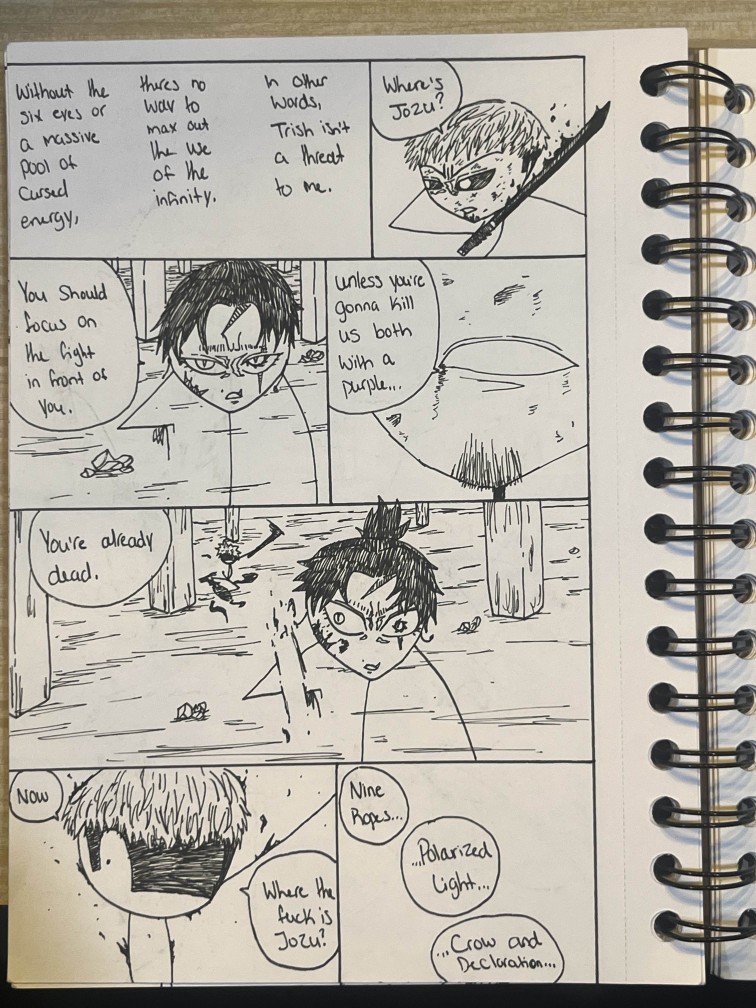 Without the
six eyes or
a massive
pool of
cursed
energy,
theres no
way to
max out
the use
of the
infinity.
In other
words,
Trish isn't
a threat
to me.
Where's
Jozu?
You should
focus on
the fight
in front of
you.
unless you're
gonna kill
us both
with a
purple...
You're already
dead.
Now
Where the
fuck is
Jozu?
Nine
Ropes...
...Polarized
Light...
...Crow and
Declaration...